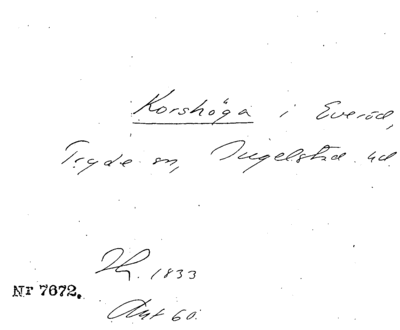 Korshöga i Everöd,
Tryde sn, Ingelstad hd
1833
Nr 7672.
Ant 60.